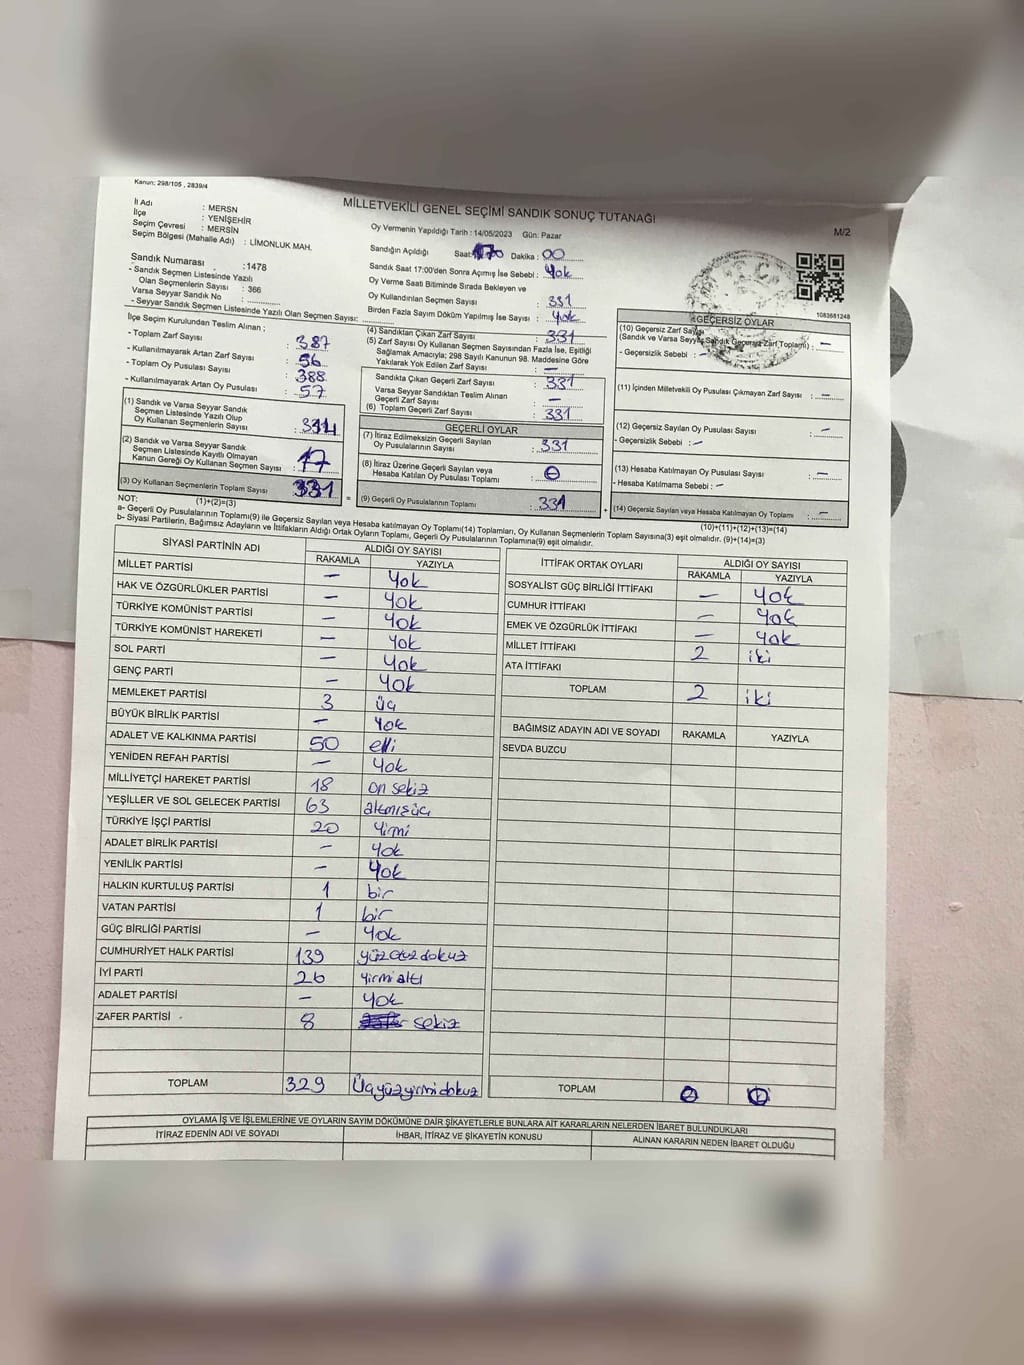 Kanun: 298/105 , 2839/4
MİLLETVEKİLİ GENEL SEÇİMİ SANDIK SONUÇ TUTANAĞI
M/2
İl Adı : MERSN
İlçe : YENİŞEHİR
Seçim Çevresi : MERSİN
Seçim Bölgesi (Mahalle Adı) : LİMONLUK MAH.
Sandık Numarası :1478
- Sandık Seçmen Listesinde Yazılı
Olan Seçmenlerin Sayısı : 366
Varsa Seyyar Sandık No :
- Seyyar Sandık Seçmen Listesinde Yazılı Olan Seçmen Sayısı:
Oy Vermenin Yapıldığı Tarih : 14/05/2023 Gün: Pazar
Sandığın Açıldığı Saat: Dakika : 00
Sandık Saat 17:00'den Sonra Açımış İse Sebebi : Yok
Oy Verme Saati Bitiminde Sırada Bekleyen ve
Oy Kullandırılan Seçmen Sayısı : 331
Birden Fazla Sayım Döküm Yapılmış İse Sayısı : Yok
1083681248
İlçe Seçim Kurulundan Teslim Alınan ;
- Toplam Zarf Sayısı : 387
- Kullanılmayarak Artan Zarf Sayısı : 56
- Toplam Oy Pusulası Sayısı : 388
- Kullanılmayarak Artan Oy Pusulası : 57
(1) Sandık ve Varsa Seyyar Sandık
Seçmen Listesinde Yazılı Olup
Oy Kullanan Seçmenlerin Sayısı : 314
(2) Sandık ve Varsa Seyyar Sandık
Seçmen Listesinde Kayıtlı Olmayan
Kanun Gereği Oy Kullanan Seçmen Sayısı : 17
(3) Oy Kullanan Seçmenlerin Toplam Sayısı 331
(1)+(2)=(3)
(4) Sandıktan Çıkan Zarf Sayısı : 331
(5) Zarf Sayısı Oy Kullanan Seçmen Sayısından Fazla İse, Eşitliği
Sağlamak Amacıyla; 298 Sayılı Kanunun 98. Maddesine Göre
Yakılarak Yok Edilen Zarf Sayısı : —
Sandıkta Çıkan Geçerli Zarf Sayısı : 331
Varsa Seyyar Sandıktan Teslim Alınan
Geçerli Zarf Sayısı : —
(6) Toplam Geçerli Zarf Sayısı : 331
GEÇERLİ OYLAR
(7) İtiraz Edilmeksizin Geçerli Sayılan
Oy Pusulalarının Sayısı : 331
(8) İtiraz Üzerine Geçerli Sayılan veya
Hesaba Katılan Oy Pusulası Toplamı :
= (9) Geçerli Oy Pusulalarının Toplamı : 331
GEÇERSİZ OYLAR
(10) Geçersiz Zarf Sayısı
(Sandık ve Varsa Seyyar Sandık Geçersiz Zarf Toplamı) : —
- Geçersizlik Sebebi : —
(11) İçinden Milletvekili Oy Pusulası Çıkmayan Zarf Sayısı : —
(12) Geçersiz Sayılan Oy Pusulası Sayısı : —
- Geçersizlik Sebebi : —
(13) Hesaba Katılmayan Oy Pusulası Sayısı : —
- Hesaba Katılmama Sebebi : —
+ (14) Geçersiz Sayılan veya Hesaba Katılmayan Oy Toplamı : —
(10)+(11)+(12)+(13)=(14)
NOT:
a- Geçerli Oy Pusulalarının Toplamı(9) ile Geçersiz Sayılan veya Hesaba katılmayan Oy Toplamı(14) Toplamları, Oy Kullanan Seçmenlerin Toplam Sayısına(3) eşit olmalıdır. (9)+(14)=(3)
b- Siyasi Partilerin, Bağımsız Adayların ve İttifakların Aldığı Ortak Oyların Toplamı, Geçerli Oy Pusulalarının Toplamına(9) eşit olmalıdır.
SİYASİ PARTİNİN ADI ALDIĞI OY SAYISI
RAKAMLA YAZIYLA
MİLLET PARTİSİ — Yok
HAK VE ÖZGÜRLÜKLER PARTİSİ — Yok
TÜRKİYE KOMÜNİST PARTİSİ — Yok
TÜRKİYE KOMÜNİST HAREKETİ — Yok
SOL PARTİ — Yok
GENÇ PARTİ — Yok
MEMLEKET PARTİSİ 3 üç
BÜYÜK BİRLİK PARTİSİ — Yok
ADALET VE KALKINMA PARTİSİ 50 elli
YENİDEN REFAH PARTİSİ — Yok
MİLLİYETÇİ HAREKET PARTİSİ 18 on sekiz
YEŞİLLER VE SOL GELECEK PARTİSİ 63 altmışüç
TÜRKİYE İŞÇİ PARTİSİ 20 Yirmi
ADALET BİRLİK PARTİSİ — Yok
YENİLİK PARTİSİ — Yok
HALKIN KURTULUŞ PARTİSİ 1 bir
VATAN PARTİSİ 1 bir
GÜÇ BİRLİĞİ PARTİSİ — Yok
CUMHURİYET HALK PARTİSİ 139 yüzotuzdokuz
İYİ PARTİ 26 Yirmialtı
ADALET PARTİSİ — Yok
ZAFER PARTİSİ 8 sekiz
TOPLAM 329 Üçyüzyirmidokuz
İTTİFAK ORTAK OYLARI ALDIĞI OY SAYISI
RAKAMLA YAZIYLA
SOSYALİST GÜÇ BİRLİĞİ İTTİFAKI — Yok
CUMHUR İTTİFAKI — Yok
EMEK VE ÖZGÜRLÜK İTTİFAKI — Yok
MİLLET İTTİFAKI 2 iki
ATA İTTİFAKI
TOPLAM 2 iki
BAĞIMSIZ ADAYIN ADI VE SOYADI RAKAMLA YAZIYLA
SEVDA BUZCU
TOPLAM
OYLAMA İŞ VE İŞLEMLERİNE VE OYLARIN SAYIM DÖKÜMÜNE DAİR ŞİKAYETLERLE BUNLARA AİT KARARLARIN NELERDEN İBARET BULUNDUKLARI
İTİRAZ EDENİN ADI VE SOYADI İHBAR, İTİRAZ VE ŞİKAYETİN KONUSU ALINAN KARARIN NEDEN İBARET OLDUĞU